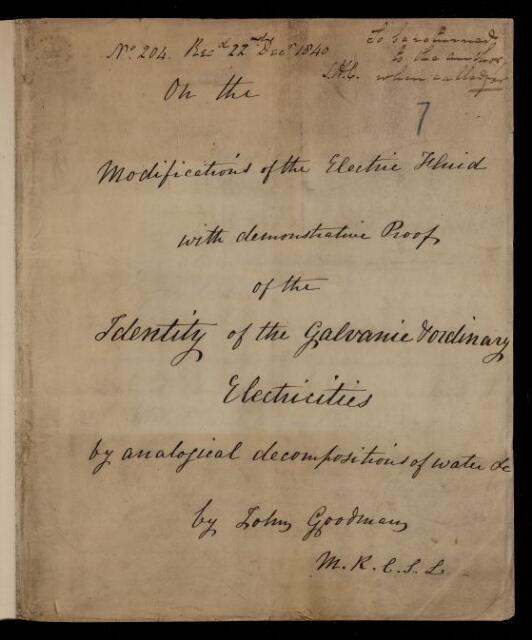 No. 204. Recd 22nd Decr 1840
To be returned
to the author
when called for
On the
7
Modifications of the Electric Fluid
with demonstrative Proof
of the
Identity of the Galvanic & ordinary
Electricities
by analogical decompositions of water &c
by John Goodman
M. R. C. S. L